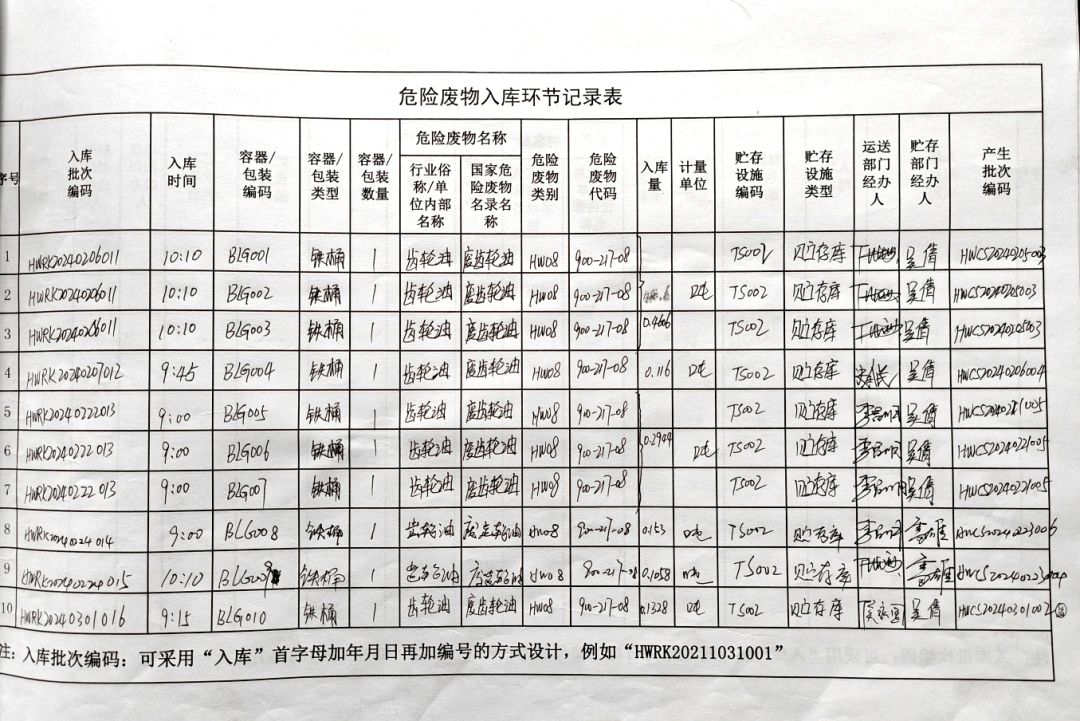 危险废物入库环节记录表
序号 入库批次编码 入库时间 容器/包装编码 容器/包装类型 容器/包装数量 危险废物名称 行业俗称/单位内部名称 国家危险废物名录名称 危险废物类别 危险废物代码 入库量 计量单位 贮存设施编码 贮存设施类型 运送部门经办人 贮存部门经办人 产生批次编码
1 HWRK20240206011 10:10 BLG001 铁桶 1 齿轮油 废齿轮油 HW08 900-217-08 TS002 贮存库 吴倩
2 HWRK20240206011 10:10 BLG002 铁桶 1 齿轮油 废齿轮油 HW08 900-217-08 吨 TS002 贮存库 吴倩 HWCS20240205003
3 HWRK20240206011 10:10 BLG003 铁桶 1 齿轮油 废齿轮油 HW08 900-217-08 0.466 TS002 贮存库 吴倩 HWCS20240205003
4 HWRK20240207012 9:45 BLG004 铁桶 1 齿轮油 废齿轮油 HW08 900-217-08 0.116 吨 TS002 贮存库 吴倩 HWCS20240206004
5 HWRK20240222013 9:00 BLG005 铁桶 1 齿轮油 废齿轮油 HW08 900-217-08 TS002 贮存库 吴倩 HWCS20240221005
6 HWRK20240222013 9:00 BLG006 铁桶 1 齿轮油 废齿轮油 HW08 900-217-08 0.2904 吨 TS002 贮存库 吴倩 HWCS20240221005
7 HWRK20240222013 9:00 BLG007 铁桶 1 齿轮油 废齿轮油 HW08 900-217-08 TS002 贮存库 吴倩 HWCS20240221005
8 HWRK20240224014 9:00 BLG008 铁桶 1 齿轮油 废齿轮油 HW08 900-217-08 0.153 吨 TS002 贮存库 HWCS20240223006
9 HWRK20240224015 10:10 BLG009 铁桶 1 齿轮油 废齿轮油 HW08 900-217-08 0.1058 吨 TS002 贮存库
10 HWRK20240301016 9:15 BLG010 铁桶 1 齿轮油 废齿轮油 HW08 900-217-08 0.1328 吨 TS002 贮存库 吴倩 HWCS20240301002
注：入库批次编码：可采用“入库”首字母加年月日再加编号的方式设计，例如“HWRK20211031001”